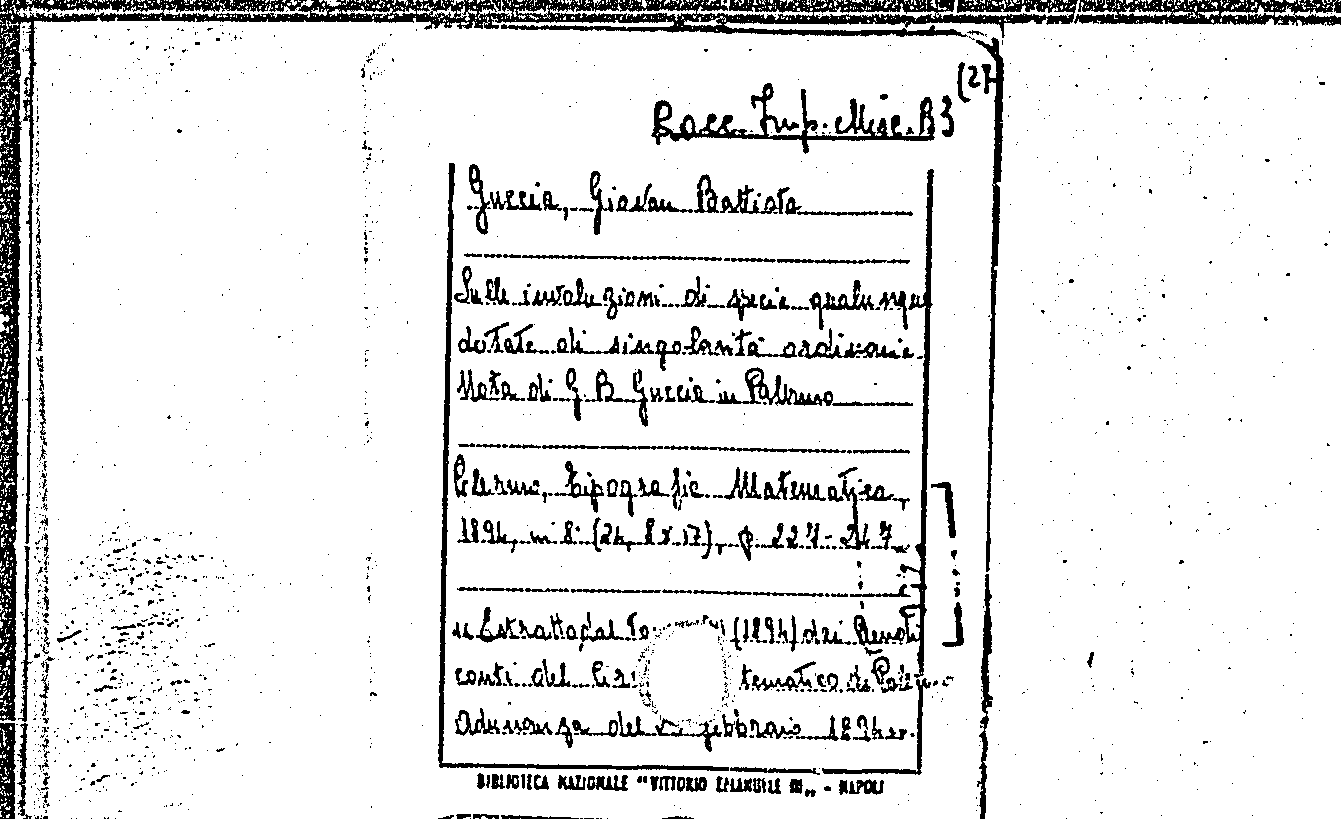 Racc. Imp. Misc. B3 (27
Guccia, Giovan Battista
Sulle involuzioni di specie qualunque
dotate di singolarità ordinarie.
Nota di G. B. Guccia in Palermo
Palermo, Tipografia Matematica,
1894, in 8° (24,8 x 17), p. 227-247
Estratto dal (1894) dei Rendi
conti del tematico di Palermo
Adunanza del febbraio 1894
BIBLIOTECA NAZIONALE "VITTORIO EMANUELE III„ - NAPOLI